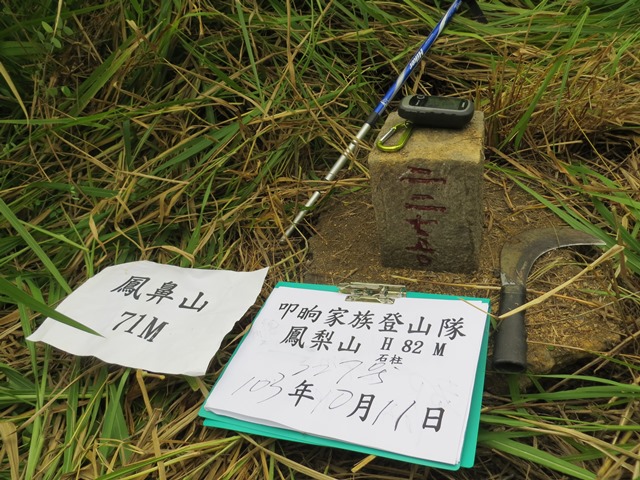 鳳鼻山
71M
叩晌家族登山隊
鳳梨山 H 82 M
石柱
227号
103年10月11日
二二七号